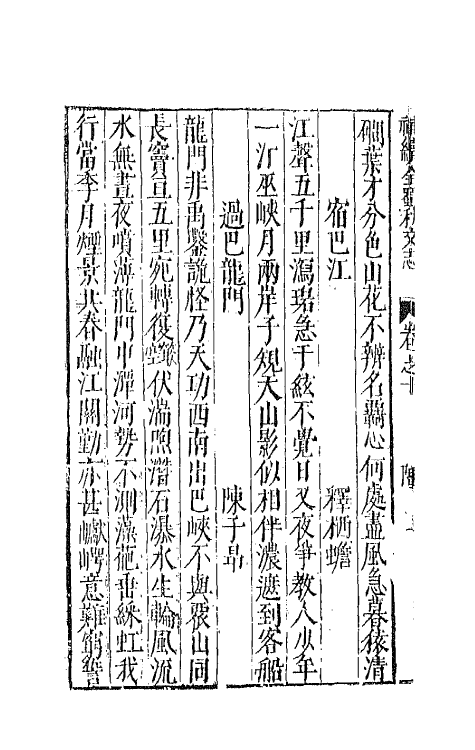 補續全蜀秇文志 卷之十
磵葉才分色山花不辨名羈心何處盡風急暮猿清
宿巴江 釋栖蟾
江聲五千里瀉碧急于絃不覺日又夜爭教人少年
一汀巫峽月兩岸子規天山影似相伴濃遮到客船
過巴龍門 陳子昂
龍門非禹鑿詭怪乃天功西南出巴峽不與衆山同
長竇亘五里宛轉復嵌空伏湍煦潛石瀑水生輪風流
水無晝夜噴薄龍門中潭河勢不測藻葩垂綵虹我
行當季月煙景共春融江關勤亦甚巘崿意難窮誓